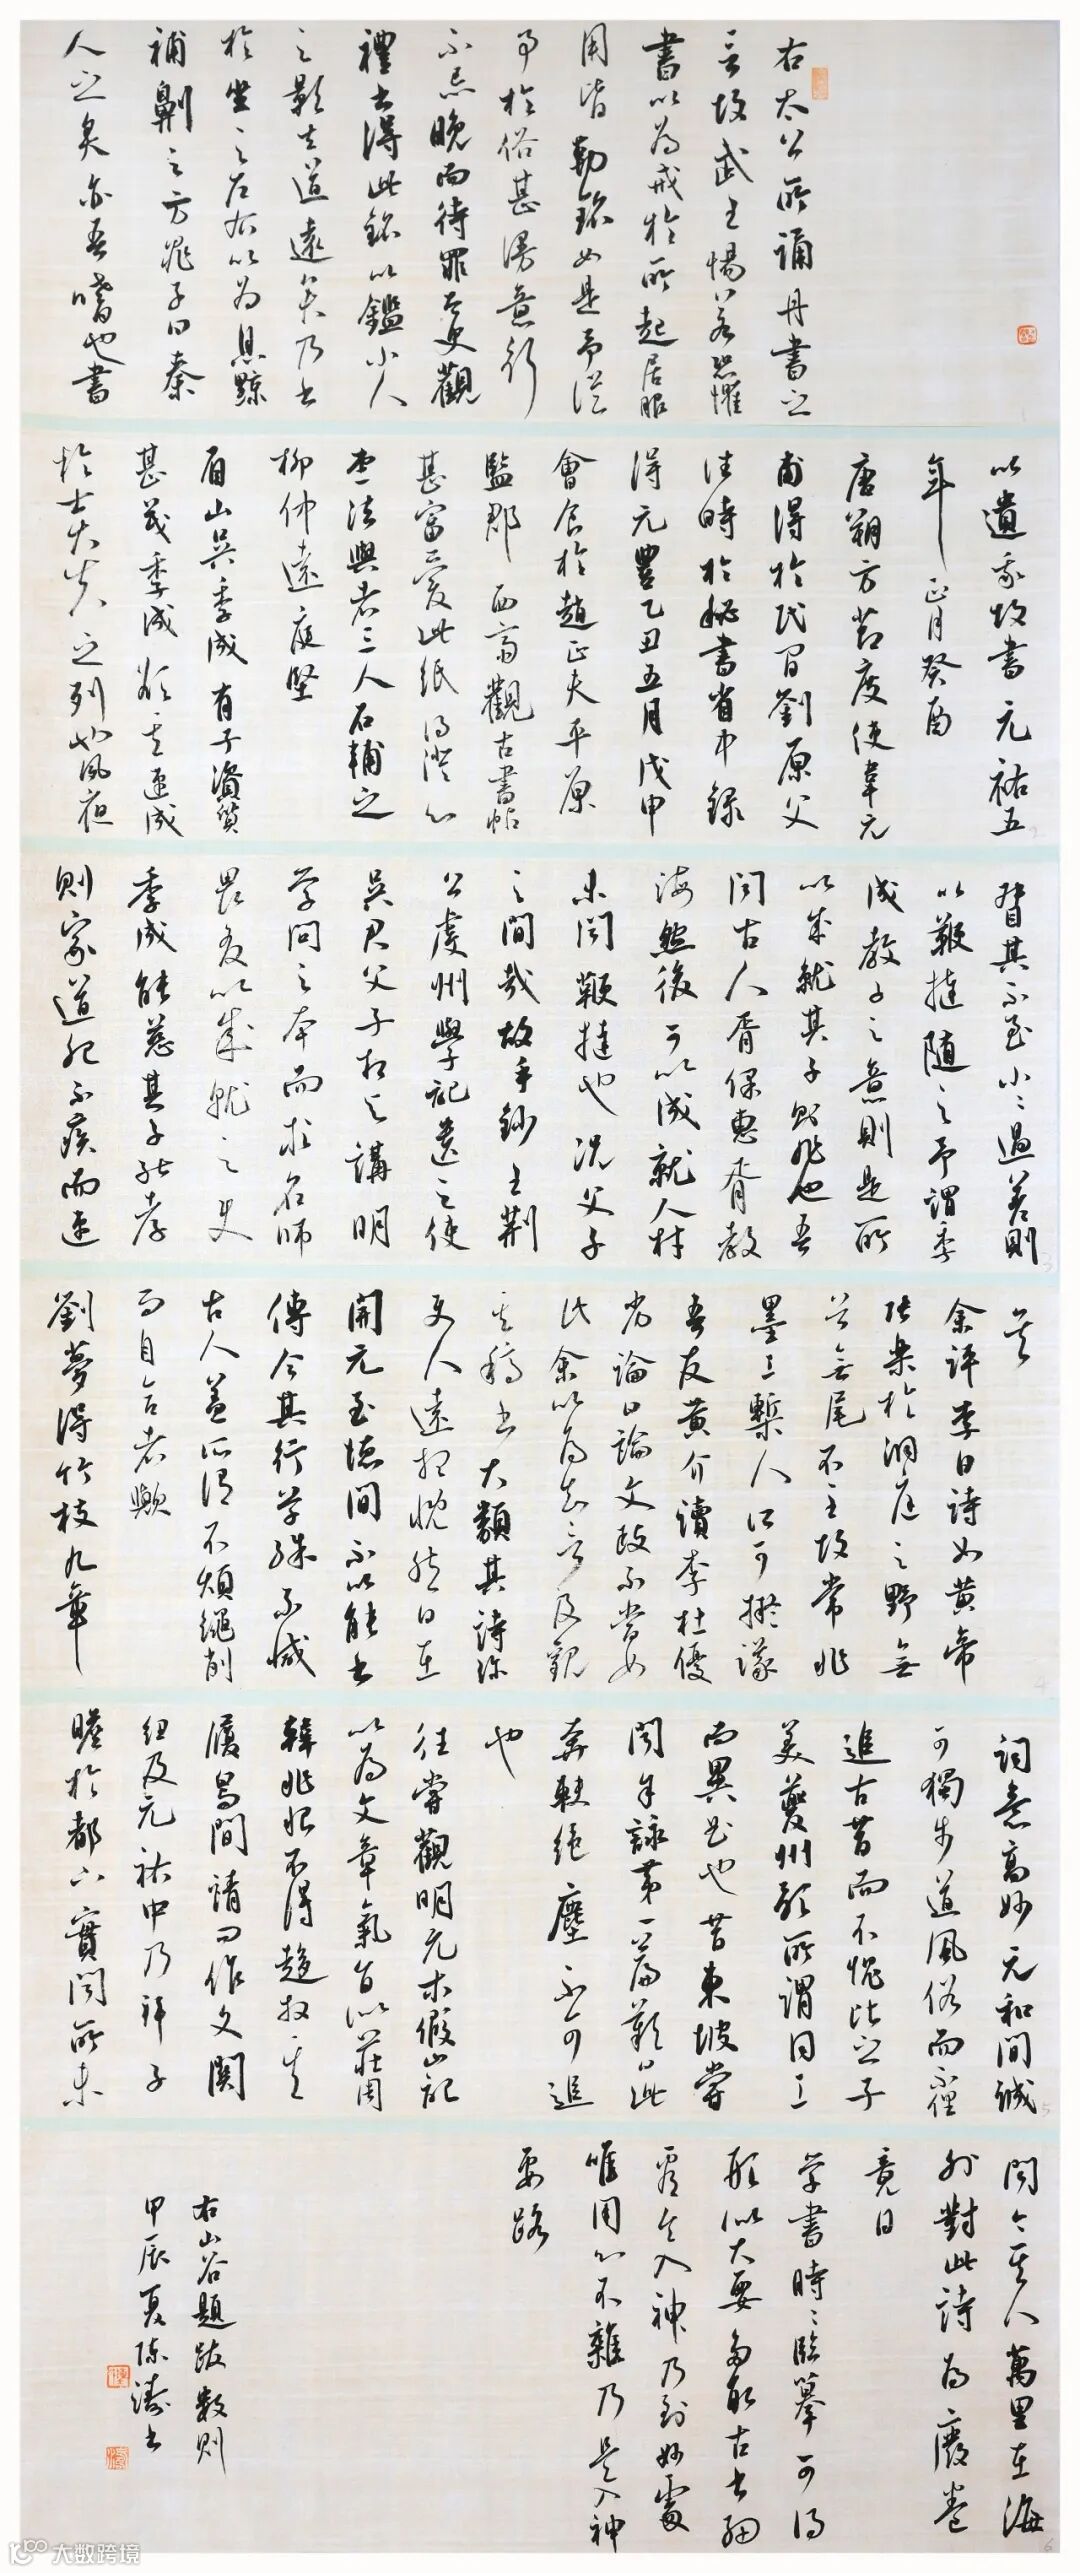 右太公所誦丹書之
言故武王惕若恐懼
書以為戒於所起居服
用皆勒銘如是予從
事於俗甚漫意行
不忌晚而待罪太史觀
禮書得此銘以鑑小人
之影去道遠矣乃書
於坐之左右以為息黥
補劓之方龍子曰秦
人之炙亦吾嗜也書
以遺秉故書元祐五
年正月癸酉
唐朔方節度使韋元
甫得於民間劉原父
往時於秘書省中錄
得元豐乙丑五月戊申
會食於趙正夫平原
監郡西齋觀古書帖
甚富愛此紙得澄心
堂法與者三人石輔之
柳仲遠庭堅
眉山吳季成有子資質
甚茂季成欲其速成
於士大夫之列也夙夜
督其不至小小過差則
以鞭撻隨之予謂季
成教子之意則是所
以成就其子則非也吾
聞古人胥保惠胥教
誨然後可以成就人材
未聞鞭撻也況父子
之間哉故手鈔王荊
公虔州學記遺之使
吳君父子相與講明
學問之本而求名師
畏友以成就之使
季成能慈其子能孝
則家道肥不疾而速
矣
余評李白詩如黃帝
張樂於洞庭之野無
首無尾不主故常非
墨工槧人所可擬議
吾友黃介讀李杜優
劣論曰論文政不當如
此余以為知言及觀
其稿書大類其詩彌
使人遠想慨然白在
開元至德間不以能書
傳今其行草殊不減
古人蓋所謂不煩繩削
而自合者歟
劉夢得竹枝九章
詞意高妙元和間誠
可獨步道風俗而不俚
追古昔而不愧比之子
美夔州歌所謂同工
而異曲也昔東坡嘗
聞余詠第一篇歎曰此
奔軼絕塵不可追
也
往嘗觀明允木假山記
以為文章氣旨似莊周
韓非恨不得趨拜其
履舄間請問作文關
紐及元祐中乃拜子
瞻於都下實聞所未
聞今其人萬里在海
外對此詩為廢卷
竟日
學書時時臨摹可得
形似大要多取古書細
看令入神乃到妙處
唯用心不雜乃是入神
要路
右山谷題跋數則
甲辰夏陳濤書
大数跨境